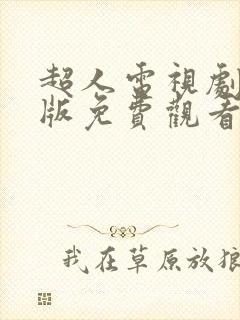 超人電視劇
版免費觀看
我在草原放狼